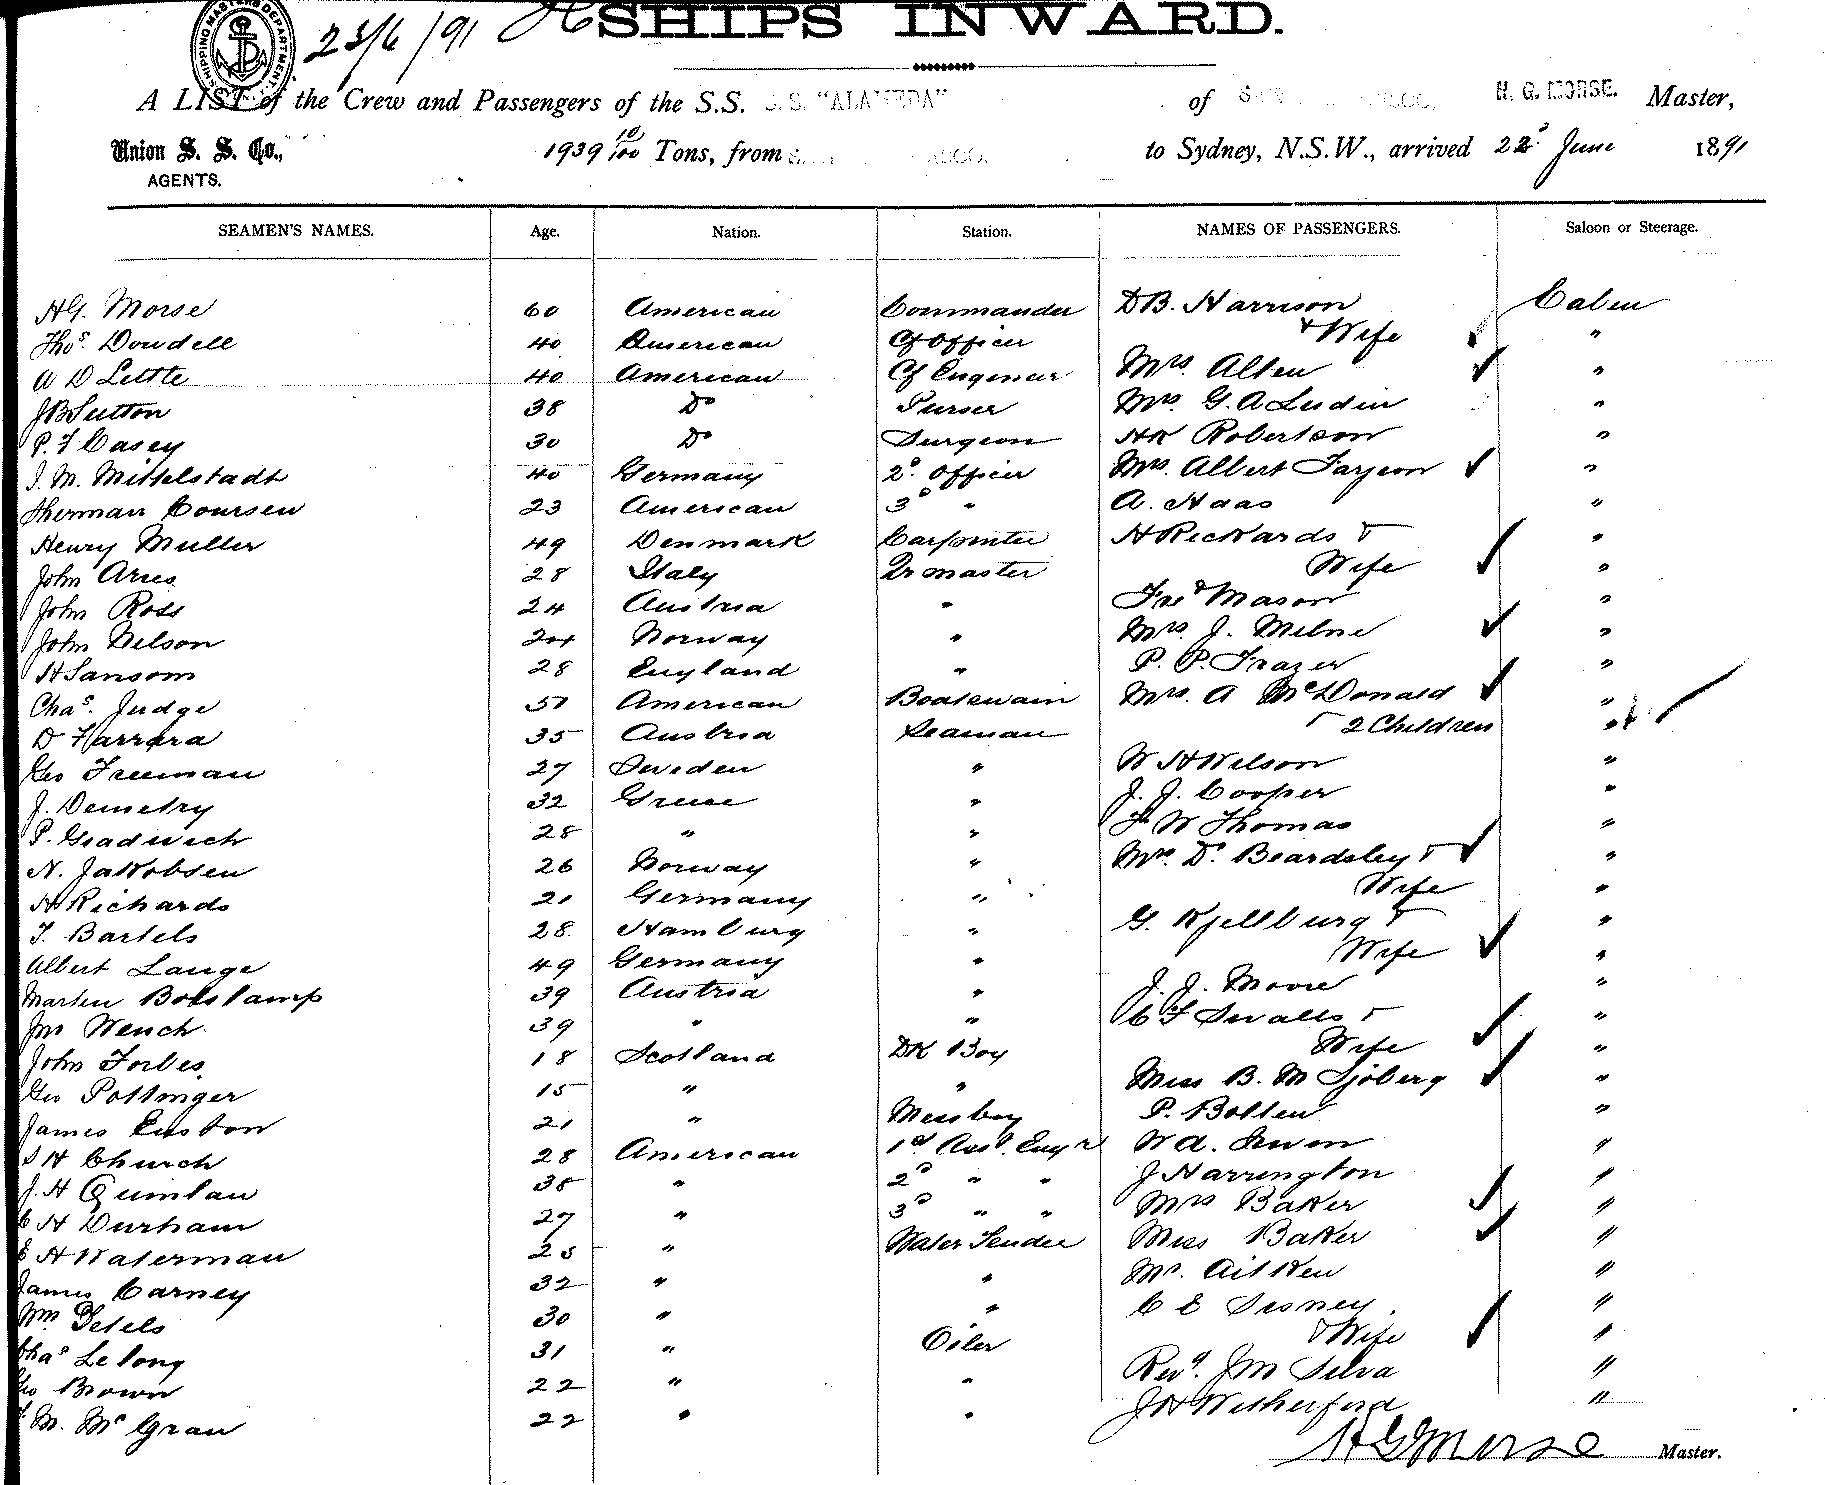 SHIPPING MASTERS DEPARTMENT
23/6/91
SHIPS INWARD.
A LIST of the Crew and Passengers of the S.S. S.S. "ALAMEDA" of H. G. MORSE. Master,
Union S. S. Co., AGENTS. 1939 10/100 Tons, from to Sydney, N.S.W., arrived 22d June 1891
SEAMEN'S NAMES. Age. Nation. Station. NAMES OF PASSENGERS. Saloon or Steerage.
HG. Morse 60 American Commander DB. Harrison Cabin
Thos. Dowdell 40 American Cf Officer & Wife "
A D Little 40 American Cf Engineer Mrs. Allen "
JB Sutton 38 Do Purser Mrs. G. A Ludin "
P. F Casey 30 Do Surgeon HK Robertson "
J. M. Mittelstadt 40 Germany 2d Officer Mrs. Albert Farjeon "
Sherman Coursen 23 American 3d " A. Haas "
Henry Muller 49 Denmark Carpenter H Rickards & "
John Aries 28 Italy Qr master Wife "
John Ross 24 Austria " Fred Mason "
John Nelson 24 Norway " Mrs. J. Milne "
H Sansom 28 England " P. P. Frazer "
Chas. Judge 51 American Boatswain Mrs. A McDonald "
D Farrara 35 Austria Seaman & 2 Children "
Geo Freeman 27 Sweden " W H Wilson "
J. Demetry 32 Greece " J. J. Cooper "
P. Gradwich 28 " " W Thomas "
N. Jakobsen 26 Norway " Dr. Beardsley & "
H Richards 21 Germany " Wife "
T. Bartels 28 Hamburg " G. Kjellburg & "
Albert Lange 49 Germany " Wife "
Marten Botslamp 39 Austria " J. J. Moore "
Jno Wench 39 " " C F Swalls & "
John Forbes 18 Scotland DK Boy Wife "
Geo Pottinger 15 " " Miss B. M Sjoberg "
James Euston 21 " Messboy P. Bolten "
S H Church 28 American 1st Asst. Engr W A. Irwin "
J. H Quinlan 38 " 2d " " J Harrington "
C H Durham 27 " 3d " " Mrs Baker "
E H Waterman 25 " Water Tender Miss Baker "
James Carney 32 " " Mr. Aitken "
Wm Petels 30 " " C E Sisney. "
Chas Le long 31 " Oiler & Wife "
Geo Brown 22 " " Revd. JM Silva "
M. McGrau 22 " " JH Witherford "
HG Morse Master.